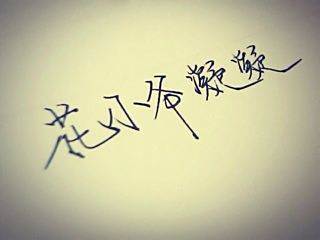 花小帝凝凝